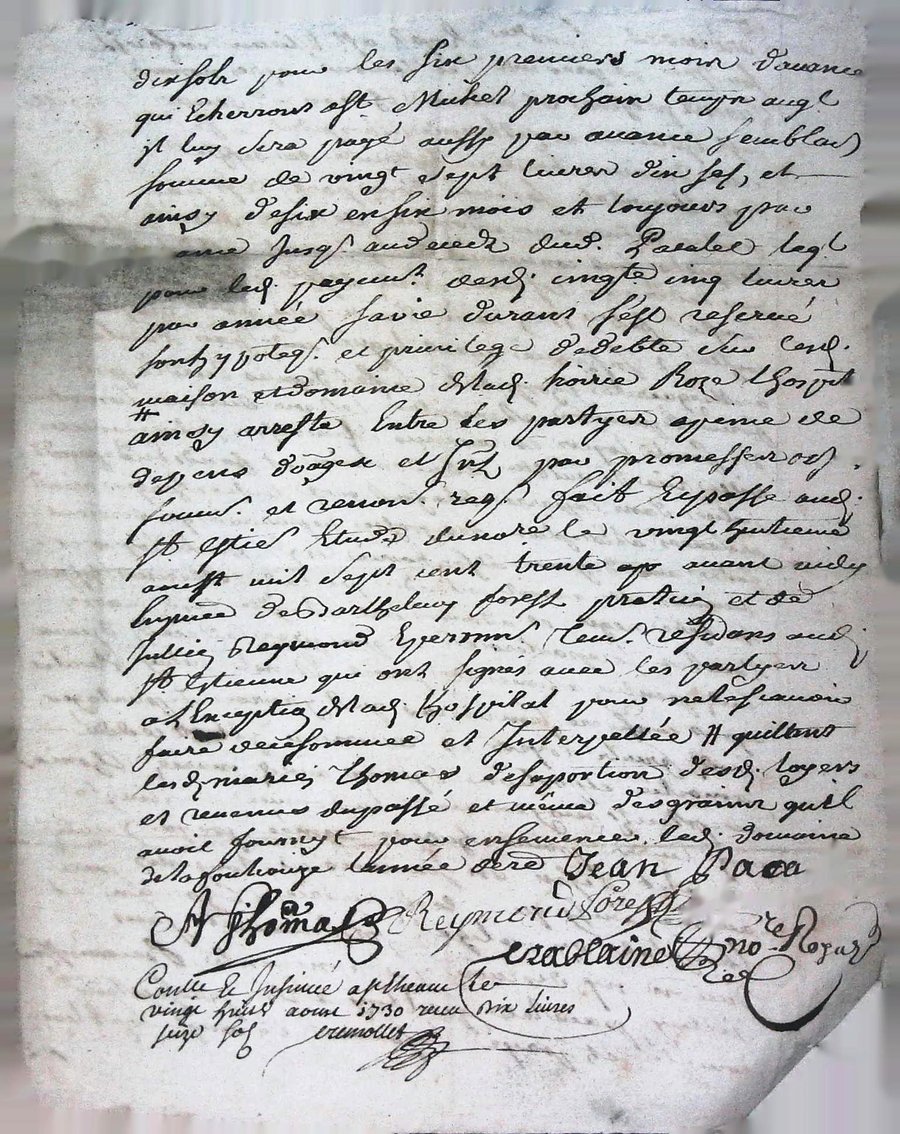 dix sols pour les six premiers mois d'avance
qui Echerront a st. Michel prochain temps auql
jl luy sera payé aussy par avance semblab
somme de vingt sept livres dix sols, et
ainsy desix ensix mois et toujours par
jusqs. audeceds dud. Pacalet
pour led. payemt. desd. cinqte. cinq livres
par année sa vie durant s'est reservé
son hypoteqs. et privilege dedebte sur lesd.
maison et domaine delad. hoirie Roze l'hospit
# ainsy arresté Entre les partyes apeine de
depens domages et Jnt. par promesses obs.
soums. et renon. reqs. fait Et passé aud.
st Estiene Etude dunore. le vingt huitieme
aoust mil sept cent trente ap avant midy
En pnce de Barthelemy forest praticien et de
Jullien Reymond tems. residans aud.
st Estienne qui ont signés avec les partyes
a l'Exception delad. hospital pour nele scavoir
faire decesommée et Interpellée # quittent
lesd. mariés Thomas desaportion desd. loyers
et revenus dupassé et même desgrains qu'il
avoit fournyt pour ensemencer led. domaine
delafoulouze l'année dere. Jean Paca
A Thomas Reymond Forest
Crablainet nore. Royal
Conlle & Insinué a st Etienne le
vingt huit aoust 1730 receu dix livres
seize sols cremollet